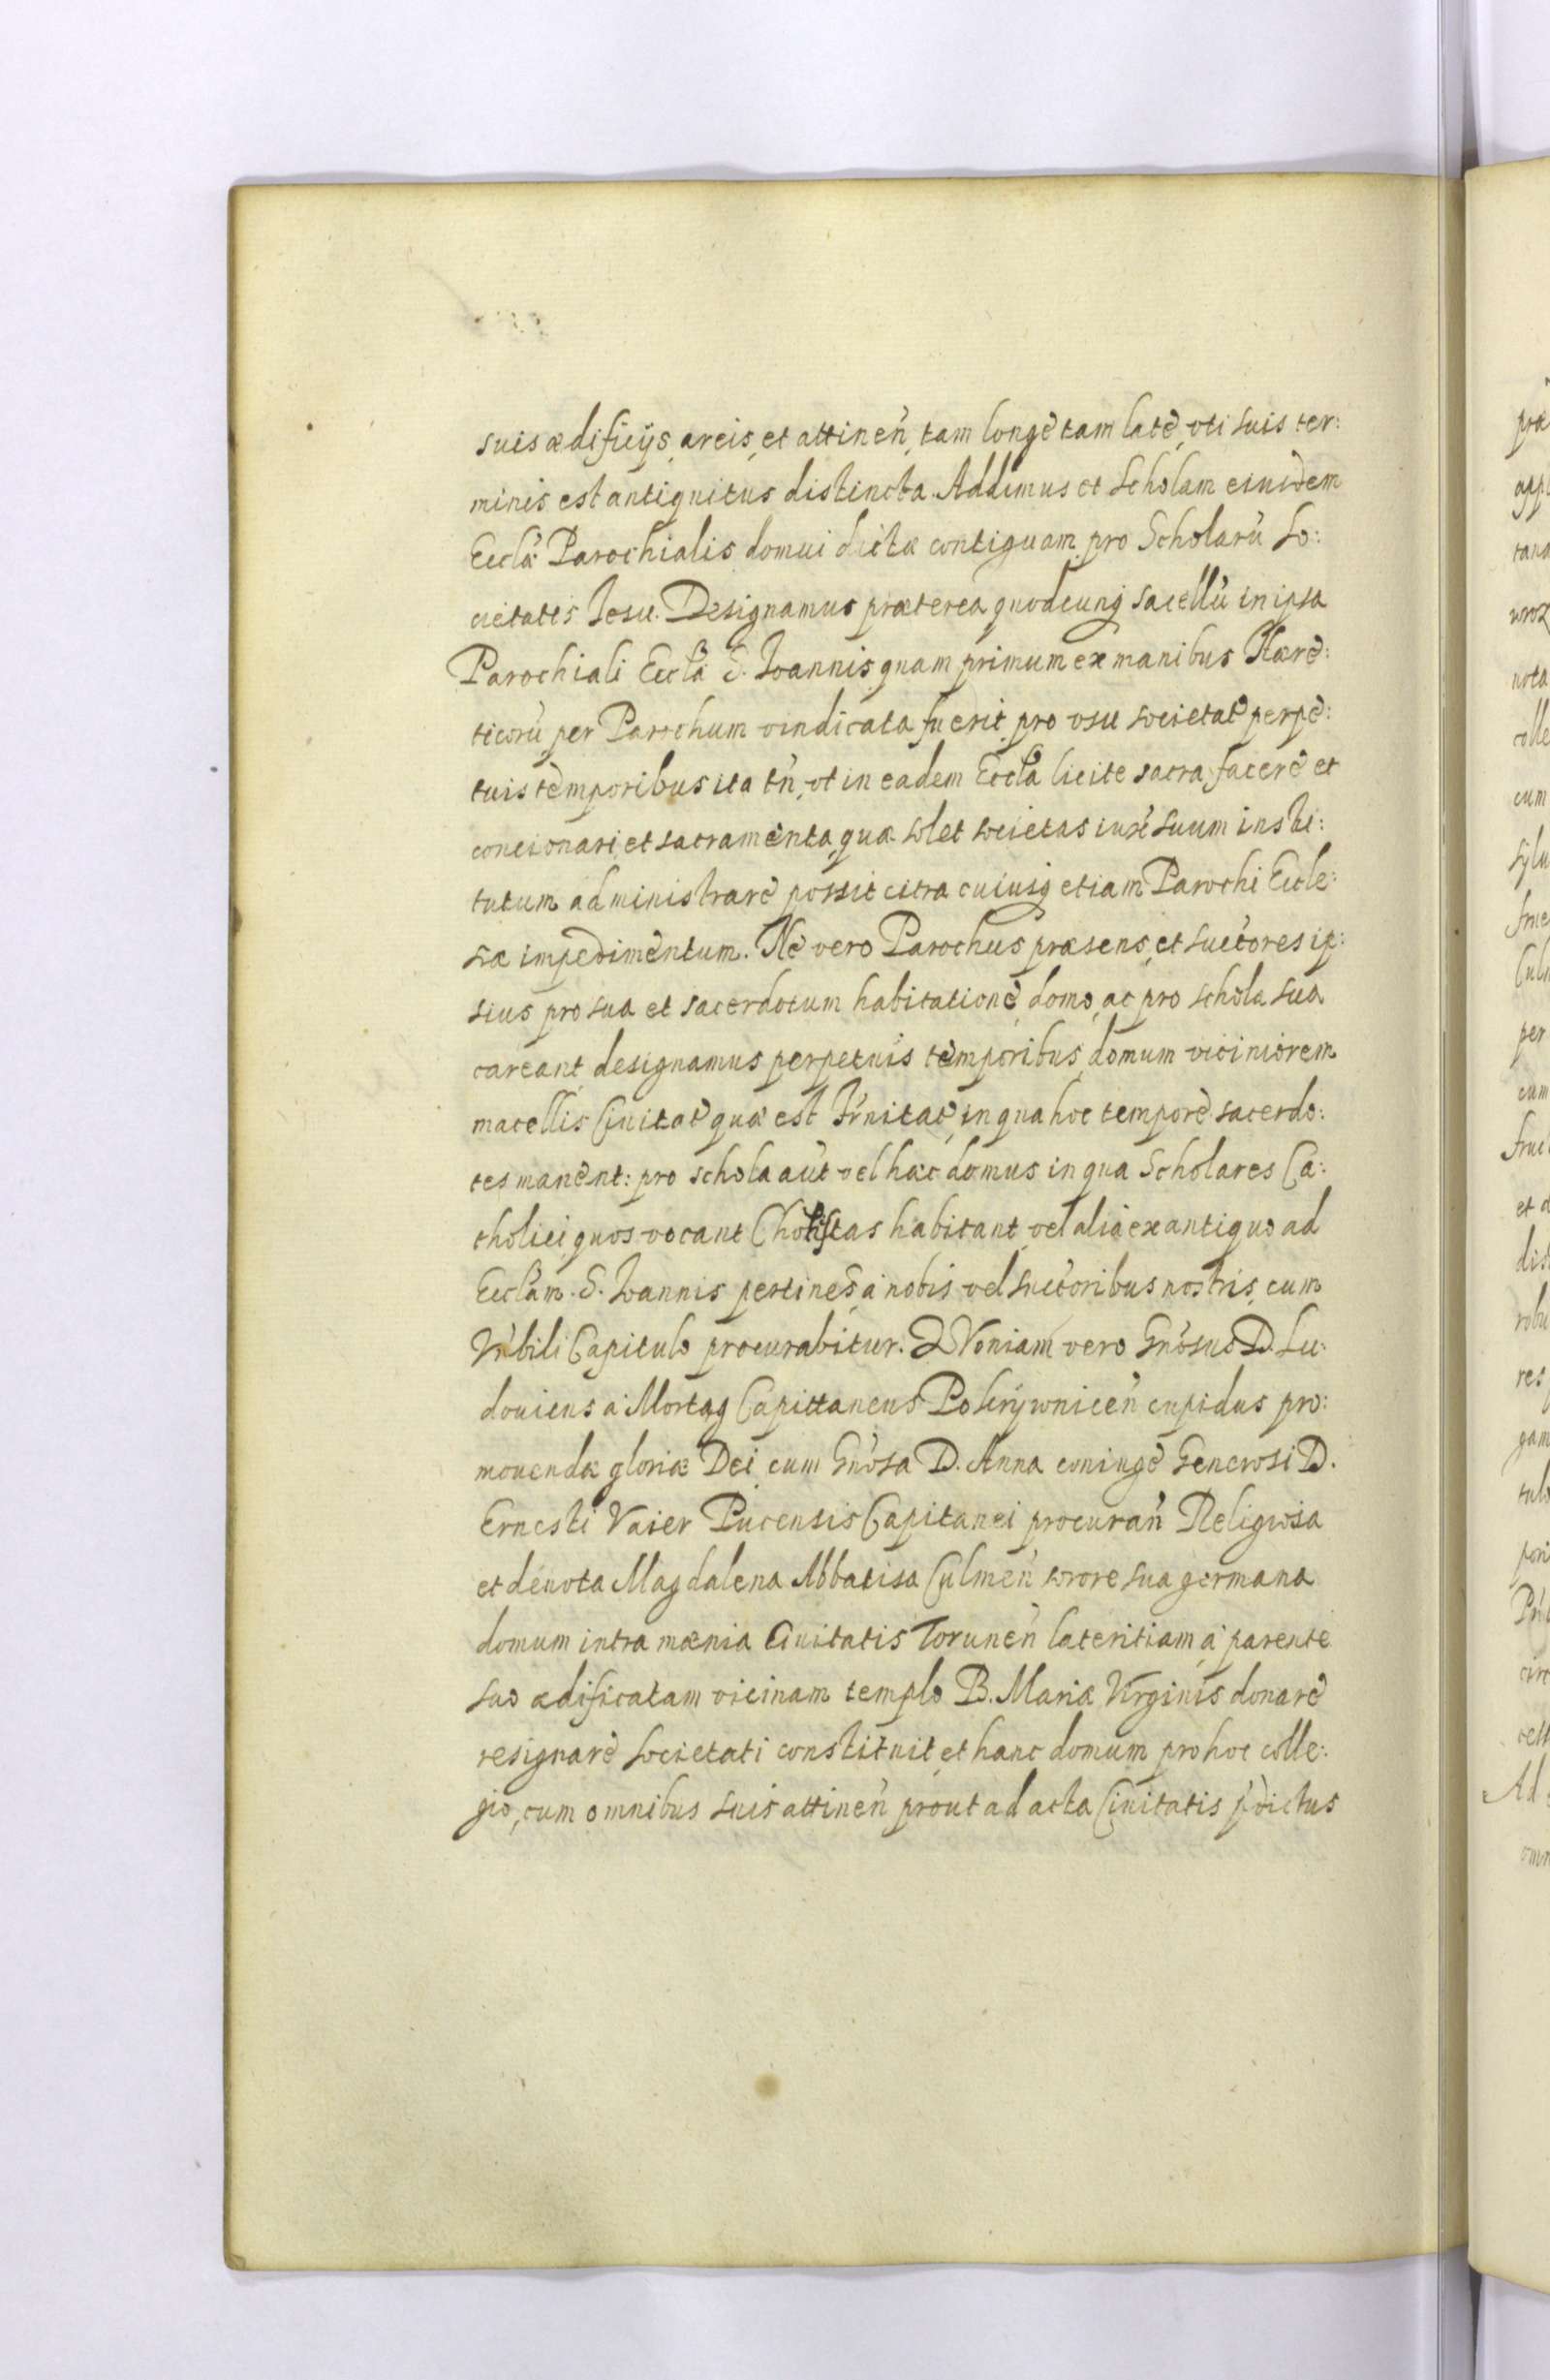 suis ædificijs, areis, et attineń, tam longè tam latè, vti suis ter:
minis est antiquitus distincta. Addimus et Scholam eiusdem
Ecclæ Parochialis domui dictæ contiguam pro Scholarū So:
cietatis Iesu. Designamus præterea quodcunq sacellū in ipsa
Parochiali Eccla S. Ioannis quam primum ex manibus Hære:
ticorū per Parochum vindicata fuerit, pro vsu societat perpe:
tuis temporibus ita tń, vt in eadem Eccla licite sacra facere et
concionari et sacramenta, quæ solet societas iuxē suum insti:
tutum administrare possit citra cuiusq etiam Parochi Eccle:
siæ impedimentum. Ne vero Parochus præsens, et suctores ip:
sius pro sua et sacerdotum habitatione domo, ac pro schola sua
careant, designamus perpetuis temporibus domum viciniorem
macellis Ciuitat quæ est Frńitat, in qua hoc tempore sacerdo:
tes manent: pro schola aūt vel hæc domus in qua Scholares Ca:
tholici quos vocant Choristas habitant, vel alia ex antiquo ad
Ecclam S. Ioannis pertineś, a nobis vel suctoribus nostris, cum
Vńbili Capitulo procurabitur. QVoniam vero Gńosus D. Lu:
douicus à Mortag Capittaneus Pokrzywniceń cupidus pro:
mouendæ gloriæ Dei cum Gńosa D. Anna coniuge Generosi D.
Ernesti Vaier Pucensis Capitanei procurań Religiosa
et deuota Magdalena Abbatisa Culmeń sorore sua germana
domum intra mænia Ciuitatis Toruneń lateritiam, à parente
suo ædificatam vicinam templo B. Mariæ Virginis donare
resignare Societati constituit, et hanc domum pro hoc colle:
gio, cum omnibus suis attineń prout ad acta Ciuitatis p̃dictus